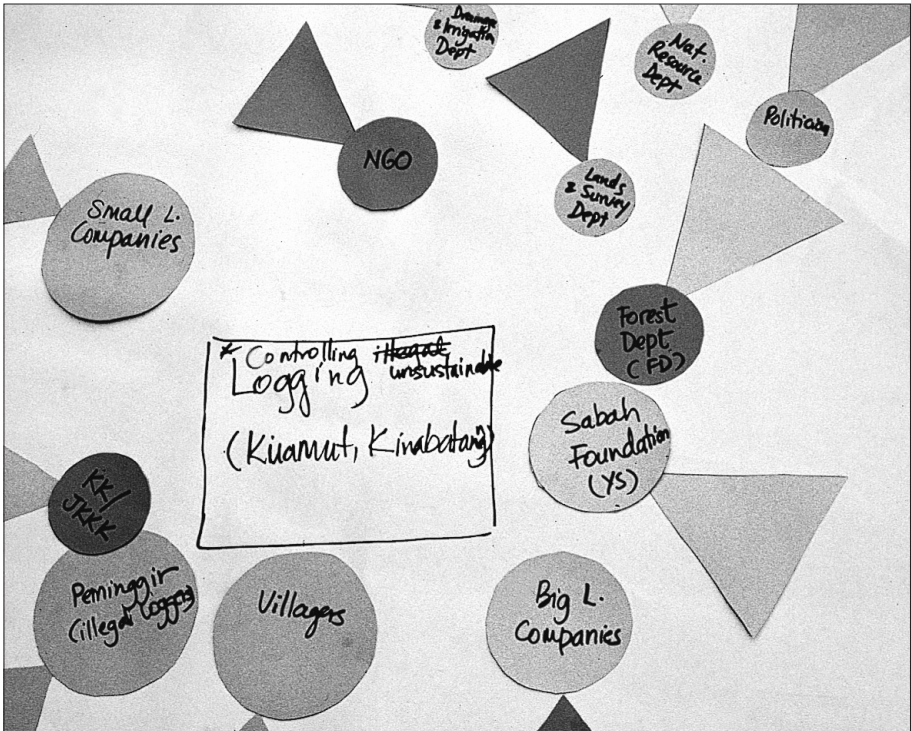 Drainage
& Irrigation
Dept
Nat.
Resource
Dept
Politician
NGO
Lands
& Survey
Dept
Small L.
Companies
Forest
Dept
(FD)
* Controlling illegal
unsustainable
Logging
(Kuamut, Kinabatang)
Sabah
Foundation
(YS)
KK/
JKKK
Peminggir
(illegal loggers)
Villagers
Big L.
Companies